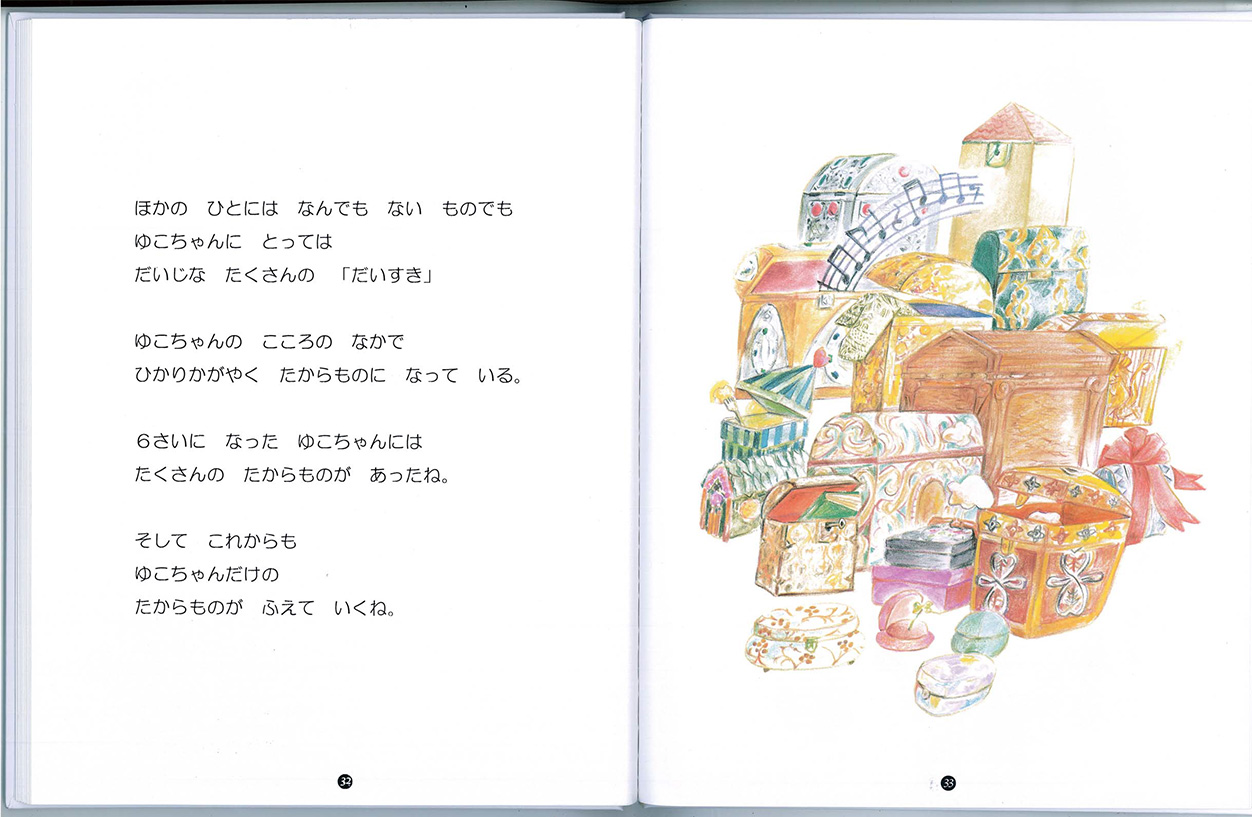 ほかの　ひとには　なんでも　ない　ものでも
ゆこちゃんに　とっては
だいじな　たくさんの　「だいすき」
ゆこちゃんの　こころの　なかで
ひかりかがやく　たからものに　なって　いる。
６さいに　なった　ゆこちゃんには
たくさんの　たからものが　あったね。
そして　これからも
ゆこちゃんだけの
たからものが　ふえて　いくね。
32
33